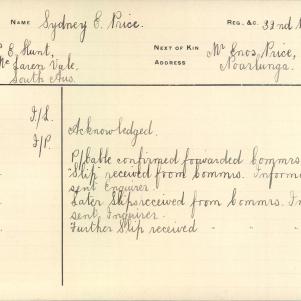 NAME Sydney E. Price. REG. &C. 32nd
E. Hunt, NEXT OF KIN Mr Enos Price,
Mc Laren Vale, ADDRESS Noarlunga.
South Aus.
I/L.
I/P. Acknowledged.
P/Cable confirmed forwarded Commrs.
"Slip" received from Commrs. Informa
sent Enquirer
Later Slips received from Commrs. In
sent Inquirer.
Further Slip received " " "